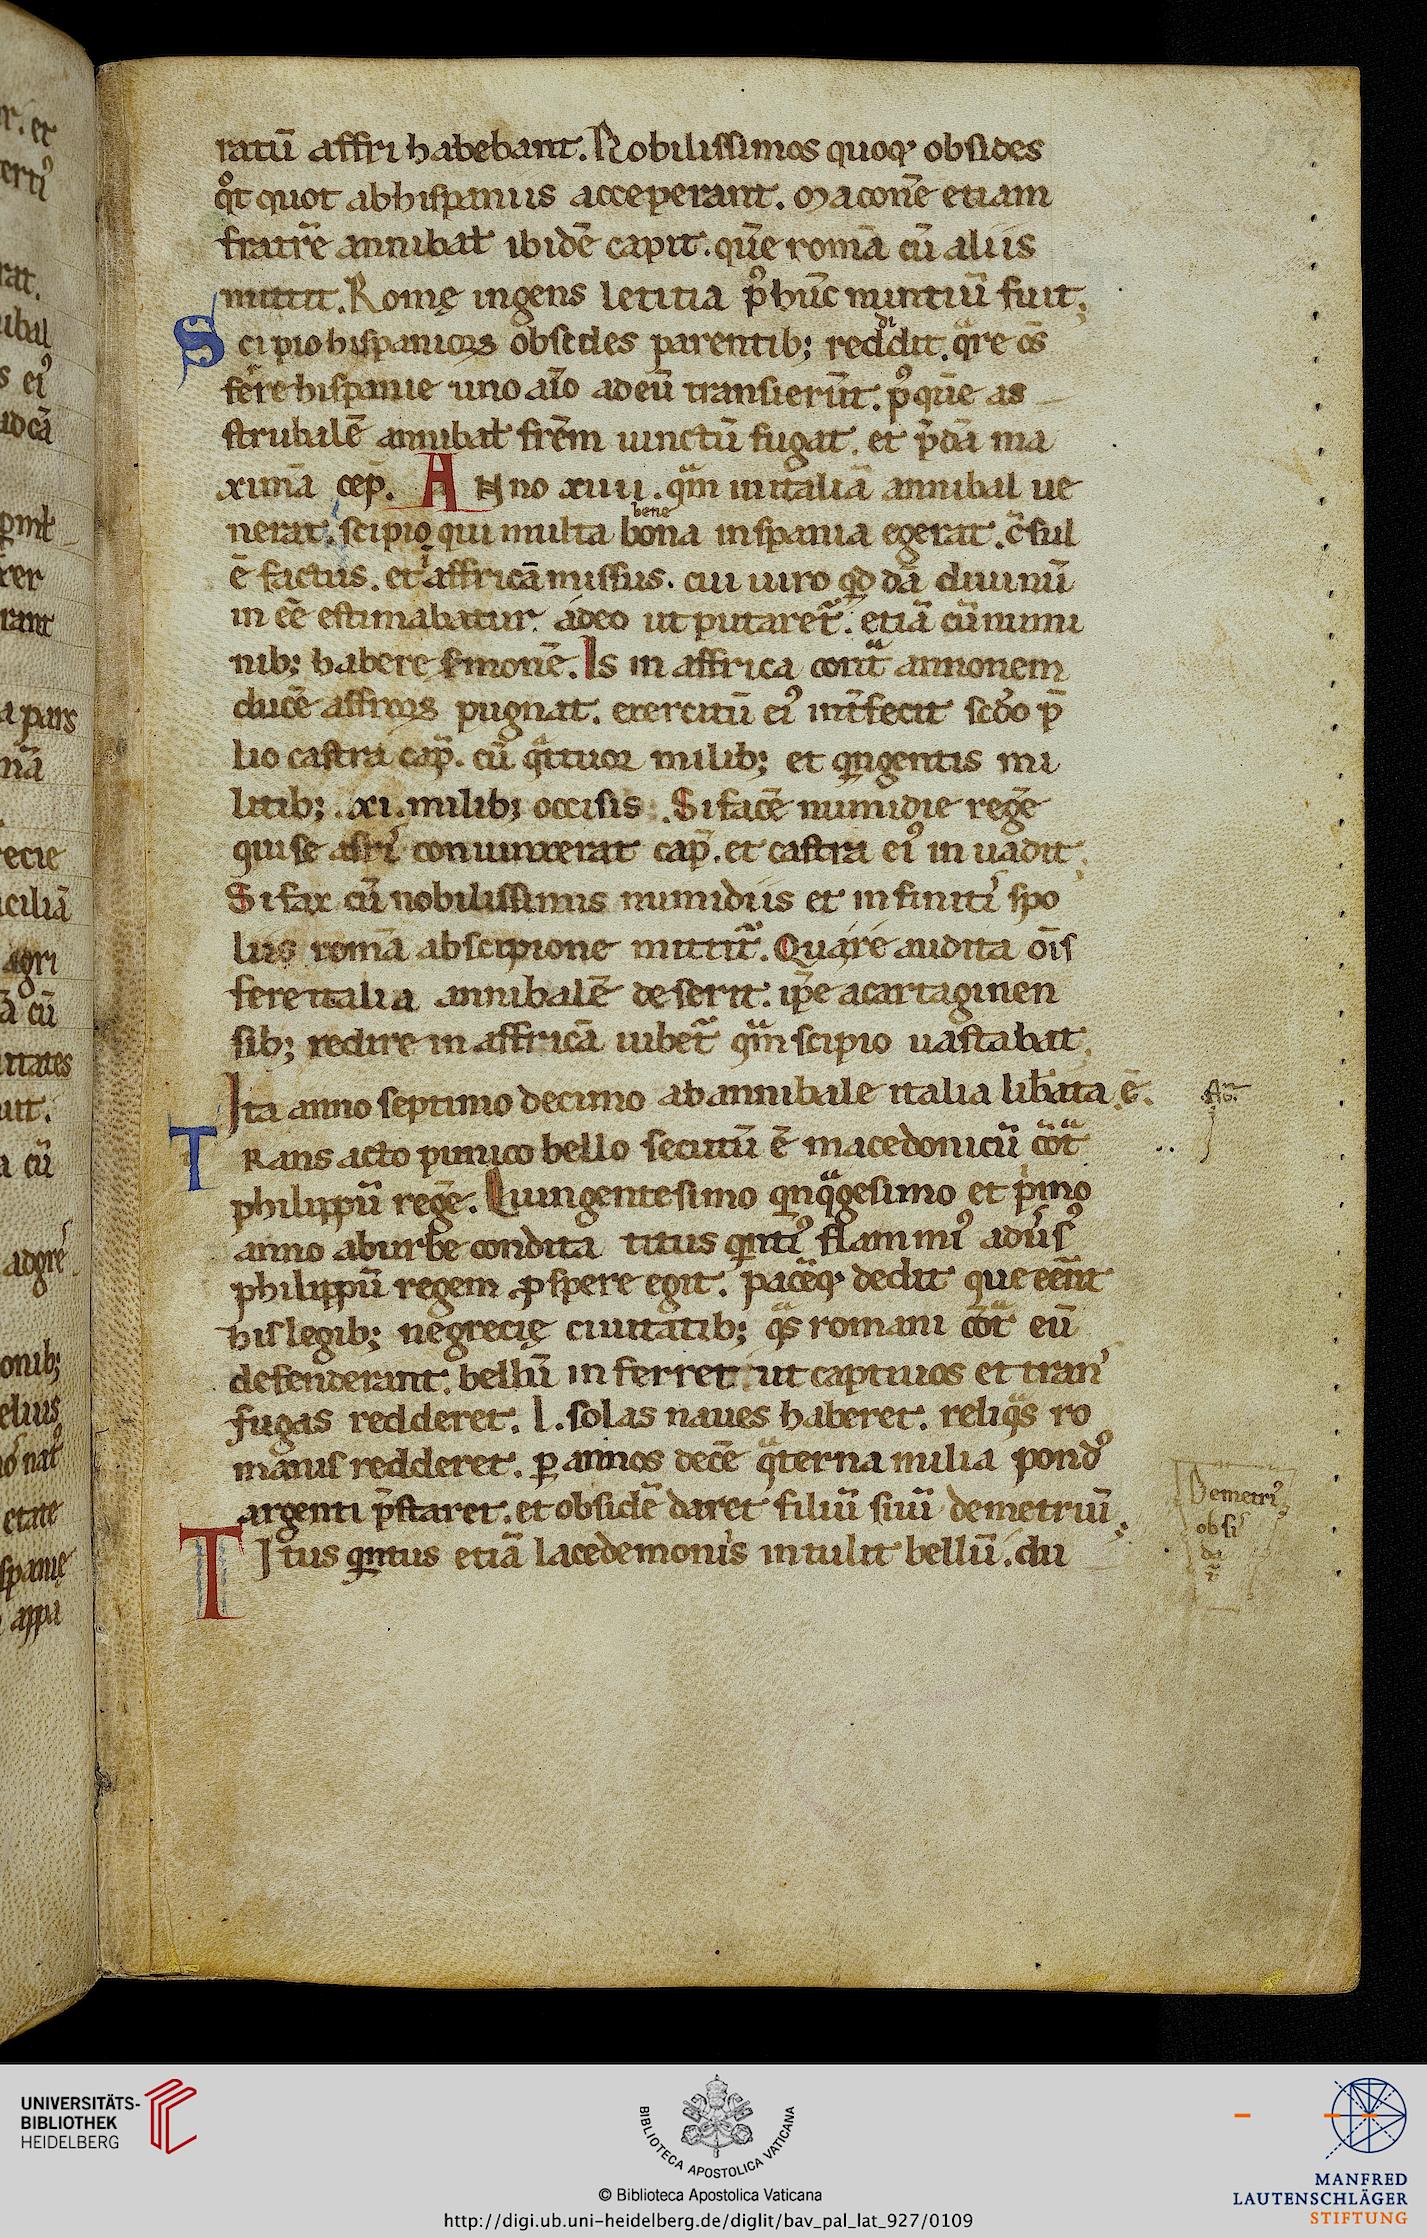 ratū affri habebant. Nobilissimos quoq; obsides
qͦt quot abhispanus acceperant. Maconē etiam
fratrē annibał ibidē capit. quē romā cū aliis
mittit. Romę ingens letitia pꝰ hūc nuntiū fuit;
Scipio hispanioꝝ obsedes parentib; reddidit. qͣre os̄
fere hispanie uno aīo adeū transierūt. pꝰ quē as
strubalē annibał frēm uinctū fugat. et p̄dā ma
ximā cep̄. Anno xiiii. qͣm initaliā annibal ue
nerat. scipio qui multa bona bene inspania egerat. c̄sul
ē factus. et iaffricā missus. cui uiro qd̄ dā diuinū
in eē estimabatur. adeo ut putaretᷣ. etiā cū numi
nib; habere sermonē. Is in affrica contͣ annonem
ducē affroꝝ pugnat. exercitū eiꝰ int̄fecit scd̄o p̄
lio castra cap̄. cū qͣttuor milib; et qngentis mi
litib; .xi. milib; occisis. Sifacē numidie regē
qui se afri conuinxerat cap̄. et castra eiꝰ in uadit;
Sifax cū nobilissimis numidiis et infiniti spo
liis romā abscipione mittitᷣ. Quare audita oīs
fere italia annibalē deserit. ip̄e acartaginen
sib; redire in affricā iubetᷣ qͣm scipio uastabat;
Ita anno septimo decimo ab annibale italia libata ē.
Trans acto punico bello secutū ē macedonicū cōtͣ
philippū regē. Quingentesimo qnqͣgesimo et pͥmo
anno aburbe condita titus qntiꝰ flaminiꝰ aduͥsꝰ
philippū regem ꝓspere egit. pacēq; dedit que eēnt
his legib; ne grecię ciuitatib; qͣs romani cōtͣ eū
defenderant. bellū inferret ut captiuos et tran
fugas redderet. L. solas naues haberet. reliqͣs ro
manis redderet. ꝑ annos decē qͣterna milia pondꝰ
argenti p̄staret. et obsidē daret filiū suū demetriū;
Titus qintus etiā lacedemonis intulit bellū. du
Demetriꝰ
obsi
da
r̄
UNIVERSITÄTS-
BIBLIOTHEK
HEIDELBERG
BIBLIOTECA APOSTOLICA VATICANA
© Biblioteca Apostolica Vaticana
http://digi.ub.uni-heidelberg.de/diglit/bav_pal_lat_927/0109
MANFRED
LAUTENSCHLÄGER
STIFTUNG